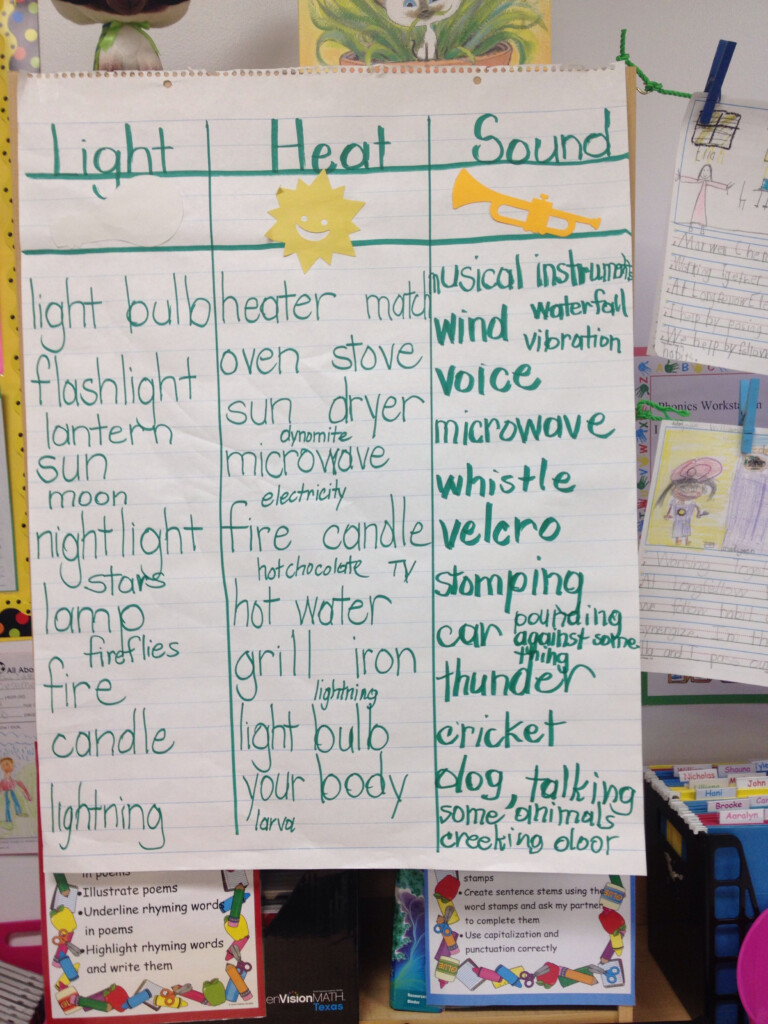 Light
light bulb
flashlight
lantern
sun
moon
nightlight
stars
lamp
fireflies
fire
candle
lightning
Heat
heater match
oven stove
sun dryer
dynomite
microwave
electricity
fire candle
hot chocolate TV
hot water
grill iron
lightning
light bulb
your body
larva
Sound
musical instruments
wind waterfall
vibration
voice
microwave
whistle
velcro
stomping
car pounding
against some
thing
thunder
cricket
dog, talking
some animals
creeking door
in poems
•Illustrate poems
•Underline rhyming words
in poems
•Highlight rhyming words
and write them
enVisionMATH
Texas
stamps
•Create sentence stems using the
word stamps and ask my partner
to complete them
•Use capitalization and
punctuation correctly
Phonics Workstation
All Abo
Nicholas
Shauna
John
Hani
Brooke
Aaralyn